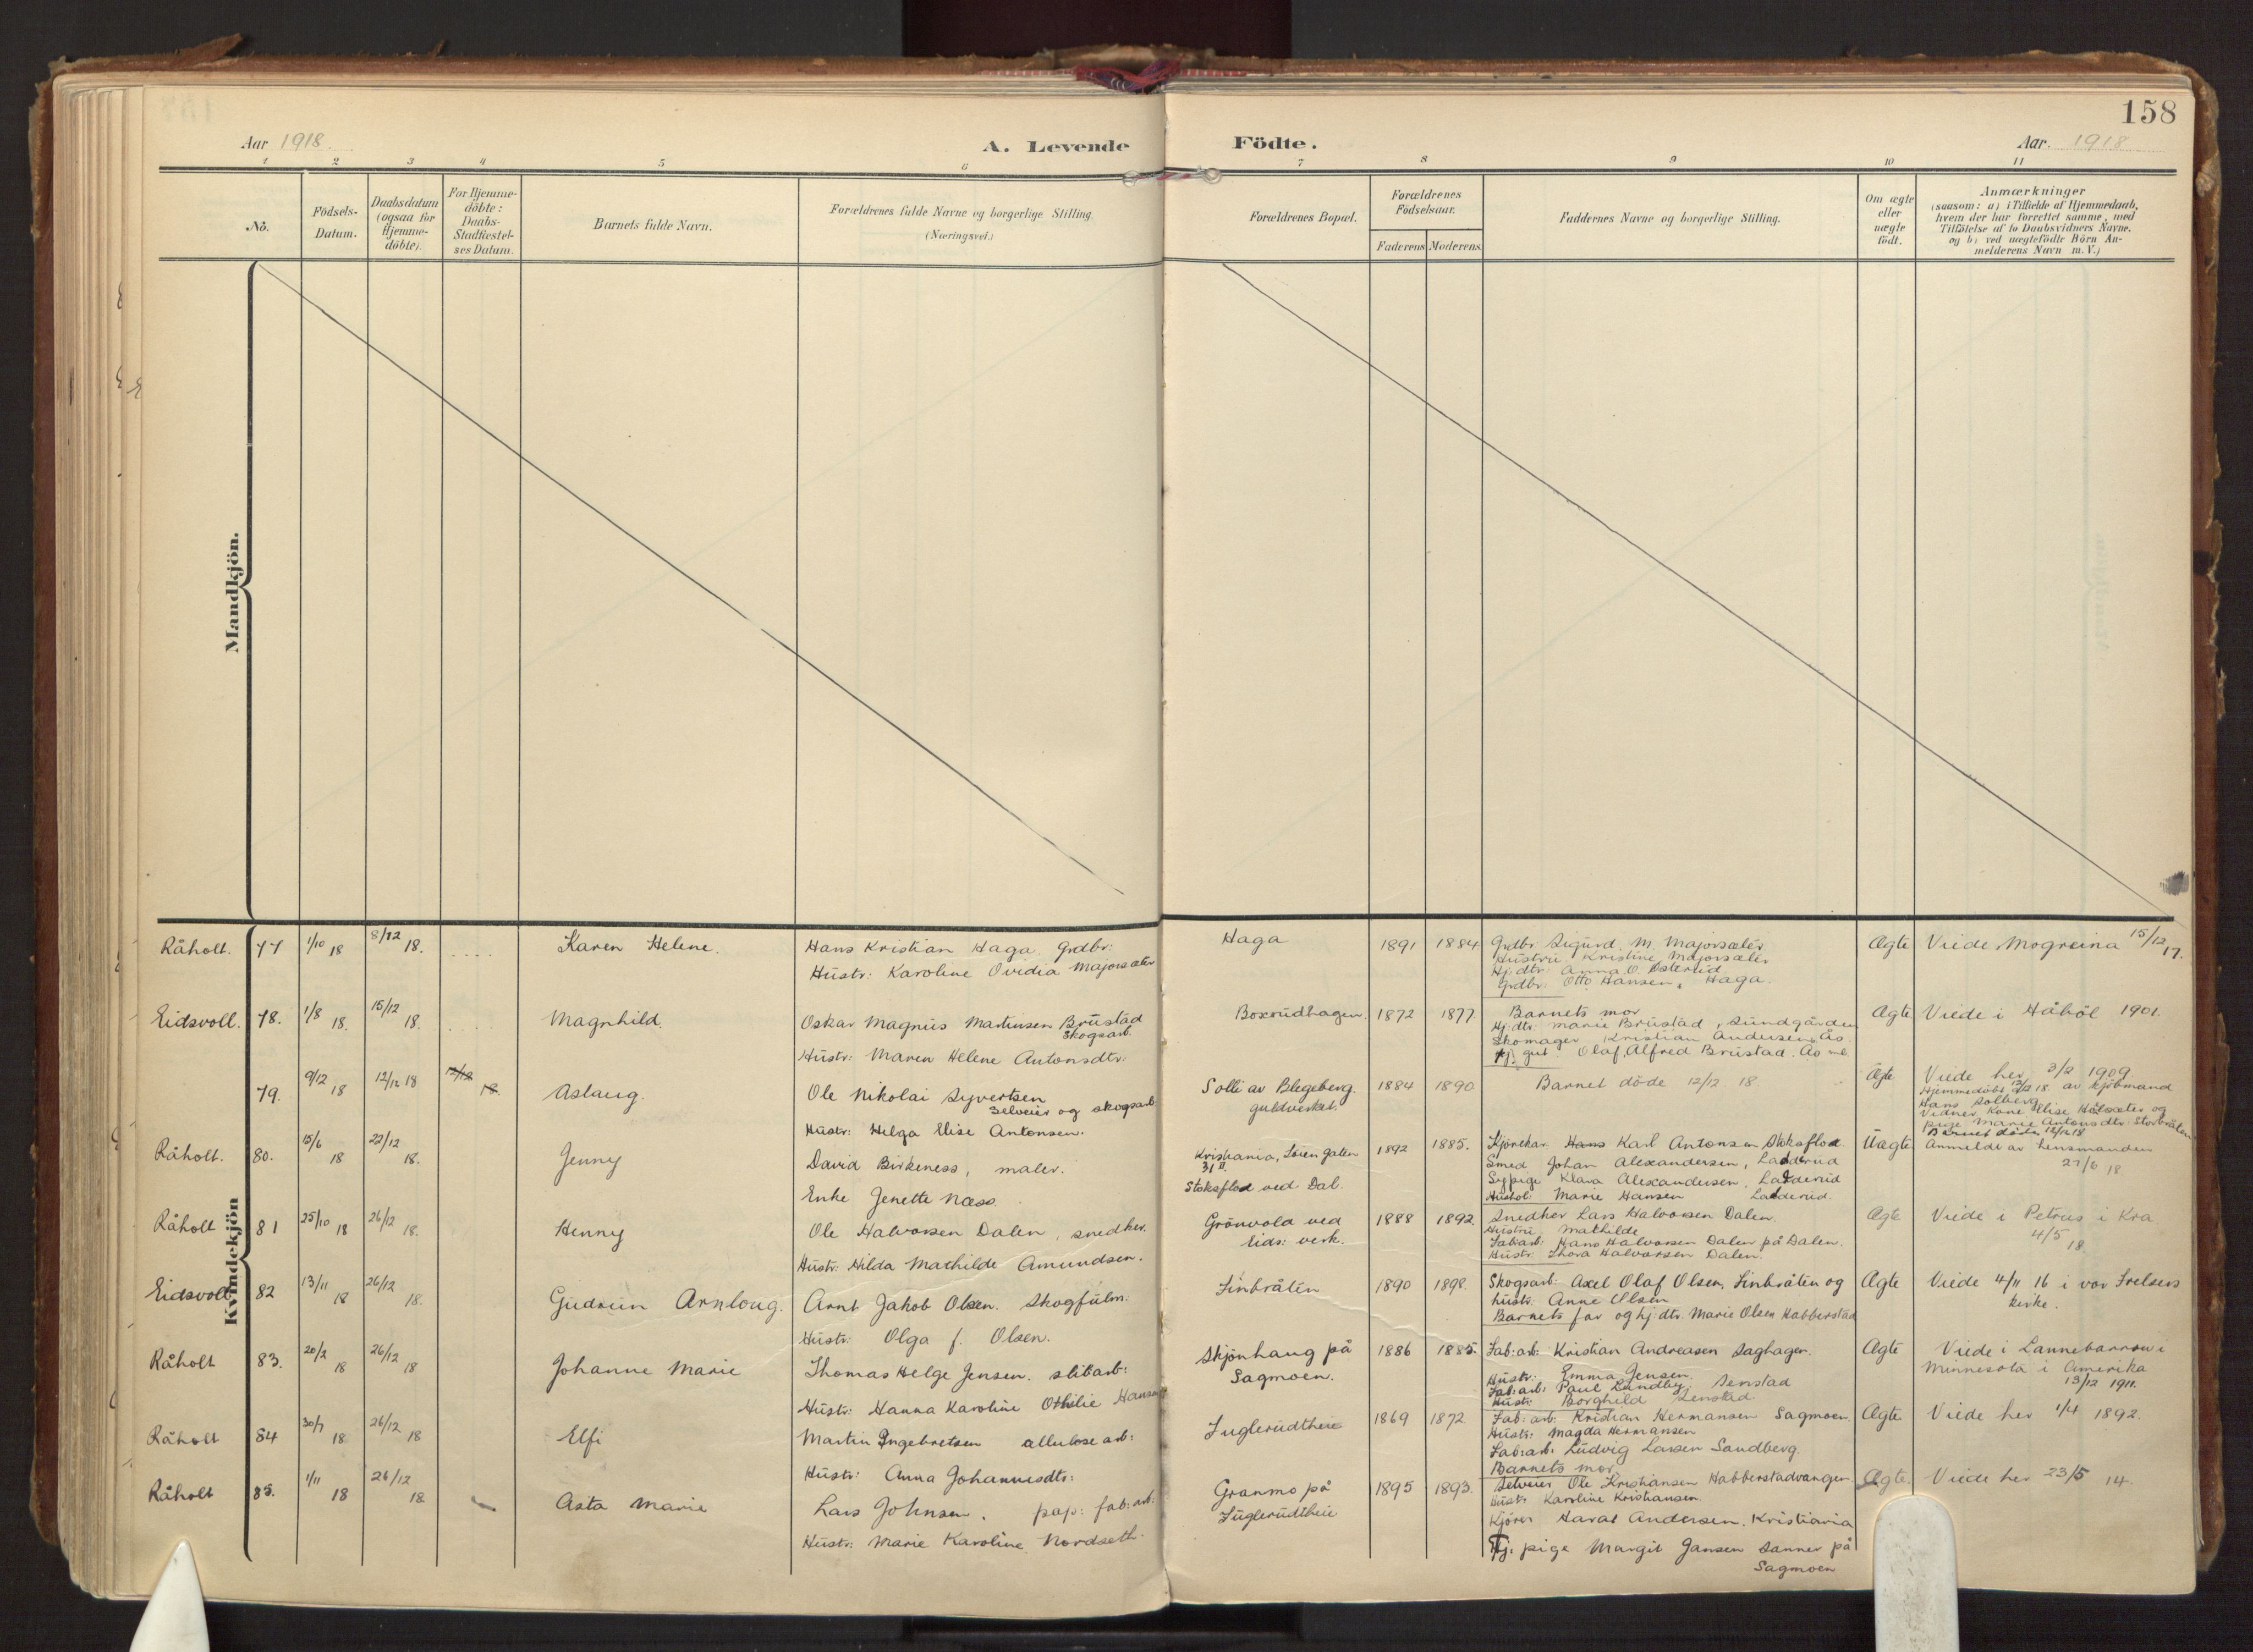 158
Aar 1918.
A. Levende
Födte.
Aar. 1918
1 2 3 4 5 6 7 8 9 10 11
No.
Födsels-
Datum.
Daabsdatum
(ogsaa for
Hjemme-
döbte).
For Hjemme-
döbte:
Daabs-
Stadfæstel-
ses Datum.
Barnets fulde Navn.
Forældrenes fulde Navne og borgerlige Stilling.
(Næringsvei.)
Forældrenes Bopæl.
Forældrenes
Födselsaar.
Faderens Moderens
Faddernes Navne og borgerlige Stilling.
Om ægte
eller
uægte
födt.
Anmærkninger
(saasom: a) i Tilfælde af Hjemmedaab,
hvem der har forrettet samme, med
Tilföielse af to Daabsvidners Navne.
og b) ved uægtefödte Börn An-
melderens Navn m.V.)
Mandkjön.
Kvindekjön
Råholt. 77 1/10 18 8/12 18.
Karen Helene.
Hans Kristian Haga Grdbr:
Hustr: Karoline Ovidia Majorsæter
Haga
1891 1884
Grdbr. Sigurd. M. Majorsæter
Hustru Kristine Majorsæter
Hj. dtr: Anna O. Österud
Grdbr: Otto Hansen, Haga.
Ægte
Viede Mogreina 15/12 17.
Eidsvoll. 78. 1/8 18. 15/12 18.
Magnhild.
Oskar Magnus Martinsen Brustad
Skogsarb.
Hustr: Maren Helene Antonsdtr:
Boxrudhagen
1872 1877
Barnets mor
Hj. dtr: Marie Brustad, Sundgården
Skomager Kristian Andersen Ås
Hj. gut Olaf Alfred Brustad. Ås
Ægte
Viede i Håböl 1901.
79. 9/12 18 12/12 18 12/12 18.
Aslaug.
Ole Nikolai Syvertsen
Selveier og skogsarb.
Hustr: Helga Elise Antonsen.
Solli av Blegeberg.
guldverket.
1884 1890
Barnet döde 12/12 18.
Ægte
Viede her 3/2 1909
Hjemmedöbt 12/12 18. av kjöbmand
Hans Solberg
Vidner Kone Elise Hålsæter og
pige Marie Antonsdtr: Storbråten
Barnet döde 12/12 18
Råholt. 80. 15/6 18 22/12 18.
Jenny
David Birkeness, maler.
Enke Jenette Næss.
Kristiania, Töien gaten
31 II.
Stoksflod ved Dal.
1892 1885.
Kjörekar Hans Karl Antonsen Stoksflod
Smed Johan Alexandersen, Ladderud
Sypige Klara Alexandersen, Ladderud
Hushol: Marie Hansen Ladderud.
Uægte
Anmeldt av lensmanden
27/6 18.
Råholt 81 25/10 18 26/12 18.
Henny
Ole Halvorsen Dalen, snedker.
Hustr: Hilda Mathilde Amundsen.
Grönvold ved
Eids: verk.
1888 1892.
Snedker Lars Halvorsen Dalen.
Hustru Mathilde
Fabarb: Hans Halvorsen Dalen på Dalen.
Hustr: Thora Halvorsen Dalen.
Ægte
Viede i Petrus i Kra
4/5 18
Eidsvoll 82 13/11 18 26/12 18.
Gudrun Arnloug.
Arnt Jakob Olsen. Skogfülm.
Hustr: Olga f. Olsen.
Finbråten
1890 1898.
Skogsarb: Axel Olaf Olsen, Finbråten og
hustr. Anne Olsen
Barnets far og hj. dtr. Marie Olsen Habberstad
Ægte
Viede 4/11 16 i vor Frelsers
kirke.
Råholt 83. 20/2 18 26/12 18
Johanne Marie
Thomas Helge Jensen. slibarb:
Hustr: Hanna Karoline Othilie Hansen
Skjönhaug på
Sagmoen.
1886 1885.
Fab: arb: Kristian Andreasen Saghagen.
Hustr: Emma Jensen
Fab: arb: Paul Lundby, Senstad
Hustr: Borghild Senstad
Ægte
Viede i Lannebarrow i
Minnesota i Amerika
13/12 1911.
Råholt 84 30/7 18 26/12 18
Elfi
Martin Ingebretsen allulose arb:
Hustr: Anna Johannesdtr:
Fuglerudtheie
1869 1872
Fab: arb: Kristian Hermansen Sagmoen.
Hustr: Magda Hermansen
Fab: arb: Ludvig Larsen Sandberg.
Barnets mor
Ægte
Viede her 1/4 1892.
Råholt 85. 1/11 18 26/12 18
Asta Marie
Lars Johnsen, pap: fab: arb:
Hustr: Marie Karoline Nordseth
Granmo på
Fuglerudtheie
1895 1893.
Selveier Ole Kristiansen Habberstadvangen.
Hustr: Karoline Kristiansen.
Kjörer Harat Andersen, Kristiania
Tj. pige Margit Jansen Sanner på
Sagmoen
Ægte.
Viede her 23/5 14.